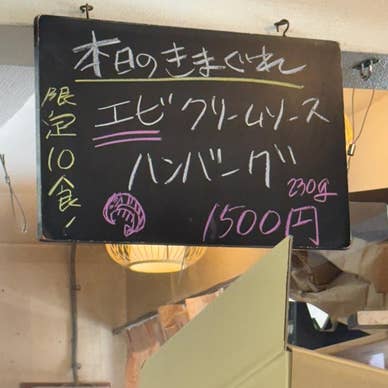 本日のきまぐれ
限定10食!
エビクリームソース
ハンバーグ
230g
1500円